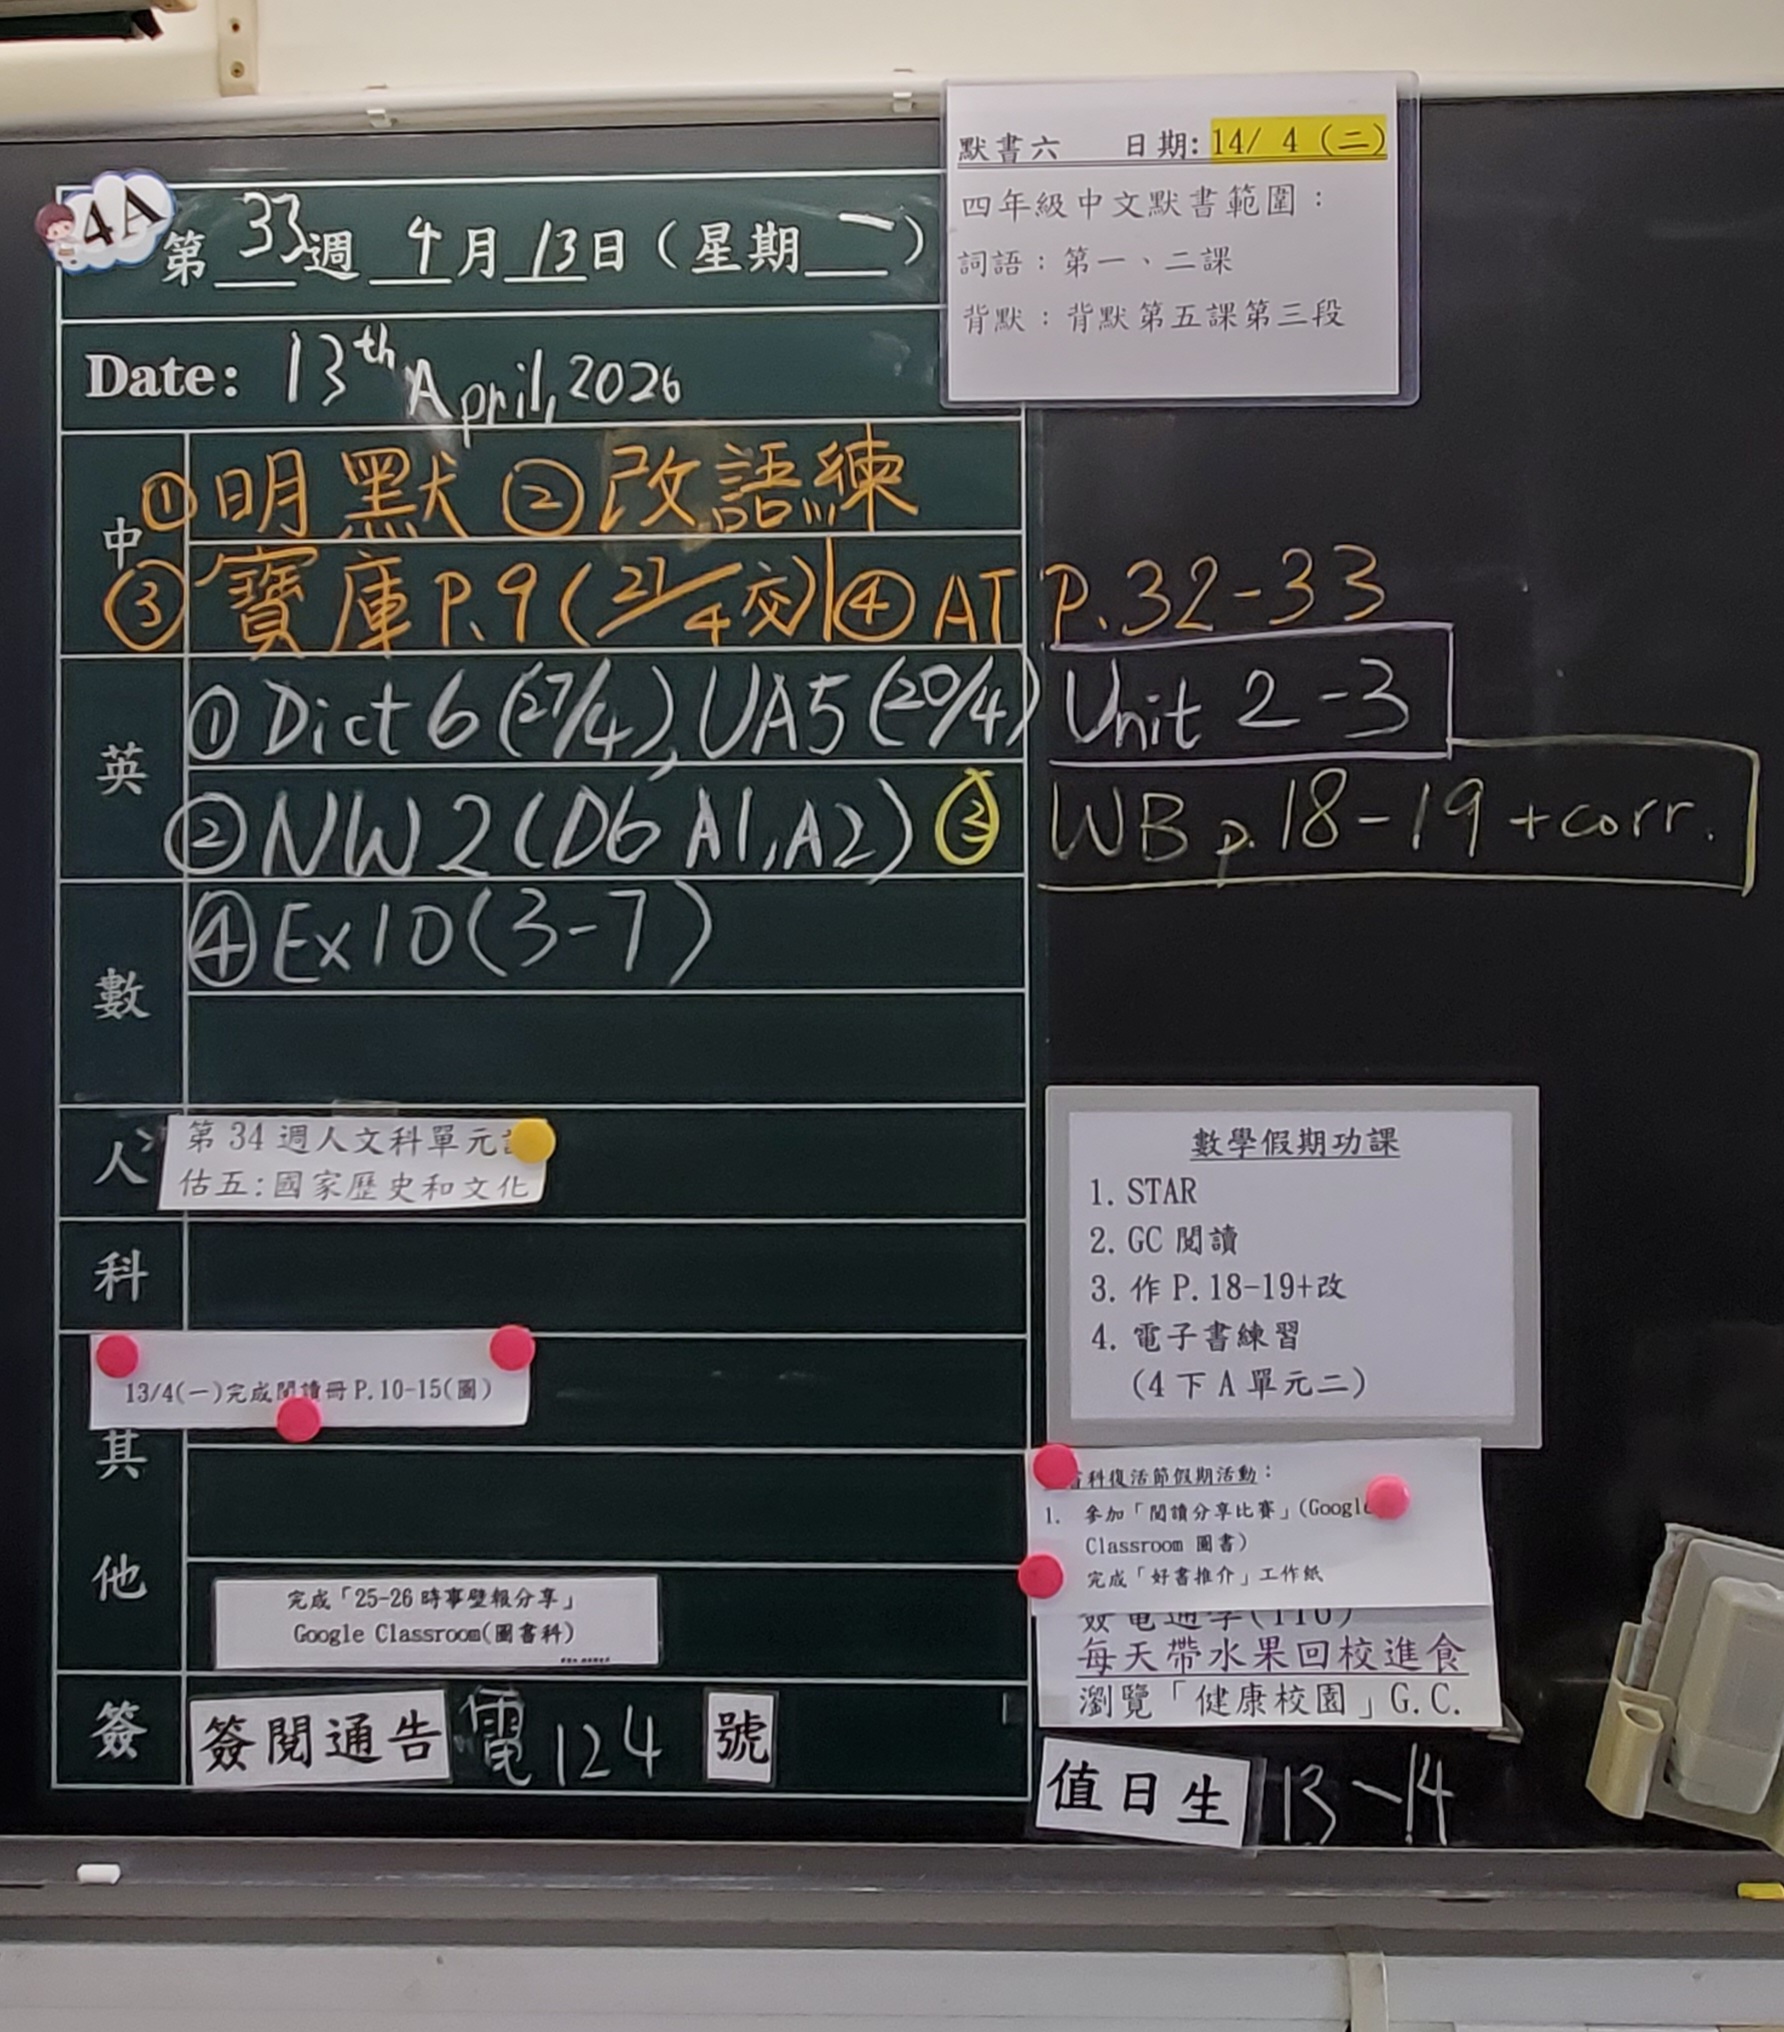 4A
第33週 4月13日(星期一)
Date: 13th April, 2026
默書六 日期: 14/ 4 (二)
四年級中文默書範圍：
詞語：第一、二課
背默：背默第五課第三段
中
①明默 ②改語練
③寶庫P.9(27/4交) ④AT P.32-33
英
①Dict 6 (27/4), UA5 (20/4) Unit 2-3
②NW2 (D6 A1, A2) ③ WB p.18-19 + corr.
④Ex10 (3-7)
數
人
第 34 週人文科單元
估五:國家歷史和文化
科
13/4(一)完成閱讀冊 P.10-15(圖)
其
他
完成「25-26 時事壁報分享」
Google Classroom(圖書科)
簽
簽閱通告 電124 號
數學假期功課
1. STAR
2. GC 閱讀
3. 作 P.18-19+改
4. 電子書練習
(4 下 A 單元二)
科復活節假期活動：
1. 參加「閱讀分享比賽」(Google
Classroom 圖書)
完成「好書推介」工作紙
每天帶水果回校進食
瀏覽「健康校園」G.C.
值日生 13、14